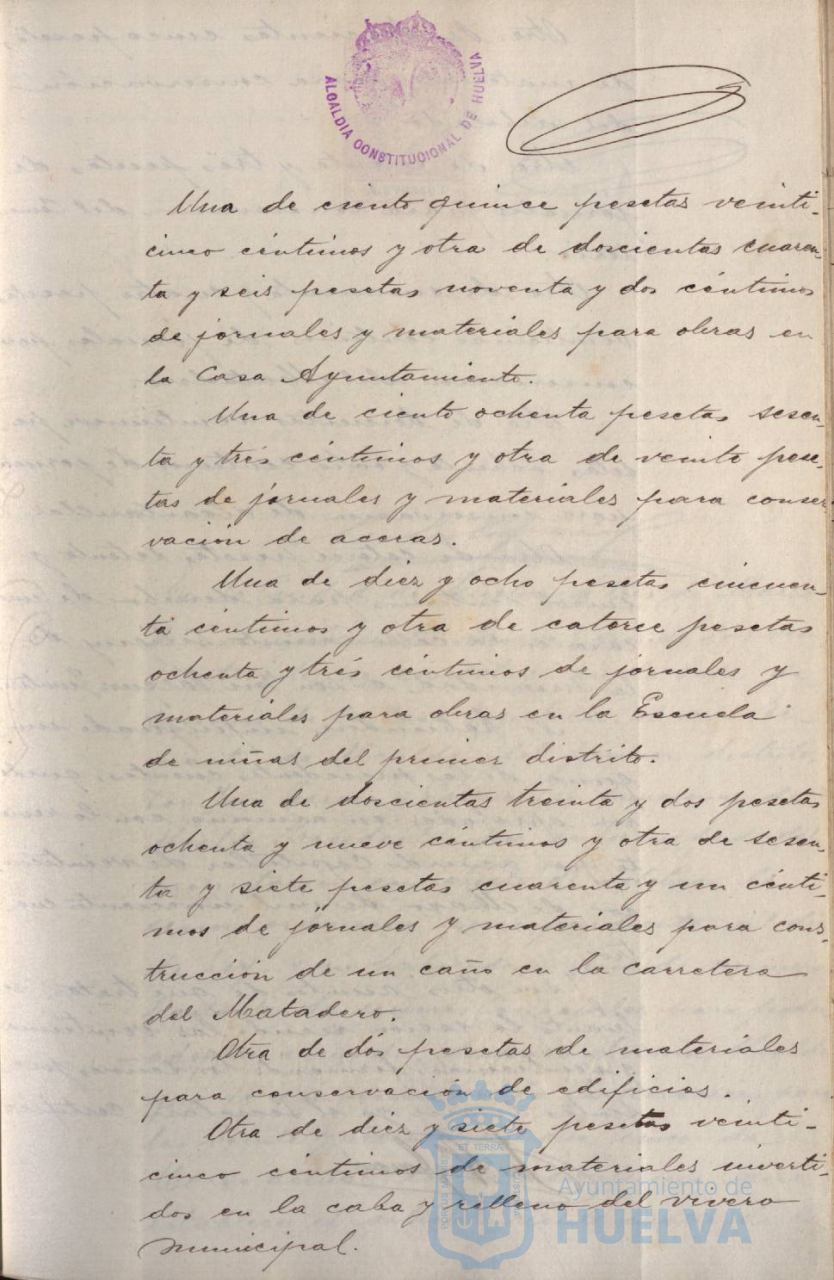 ALCALDIA CONSTITUCIONAL DE HUELVA
Una de ciento quince pesetas veinti-
cinco céntimos y otra de doscientas cuaren-
ta y seis pesetas noventa y dos céntimos
de jornales y materiales para obras en
la Casa Ayuntamiento.
Una de ciento ochenta pesetas sesen-
ta y trés céntimos y otra de veinte pese-
tas de jornales y materiales para conser-
vación de aceras.
Una de diéz y ocho pesetas cincuen-
ta céntimos y otra de catorce pesetas
ochenta y trés céntimos de jornales y
materiales para obras en la Escuela
de niñas del primer distrito.
Una de doscientas treinta y dos pesetas
ochenta y nueve céntimos y otra de sesen-
ta y siete pesetas cuarenta y un cénti-
mos de jornales y materiales para cons-
trucción de un caño en la carretera
del Matadero.
Otra de dós pesetas de materiales
para conservación de edificios.
Otra de diéz y siete pesetas veinti-
cinco céntimos de materiales inverti-
dos en la caba y relleno del vivero
municipal.
Ayuntamiento de
HUELVA